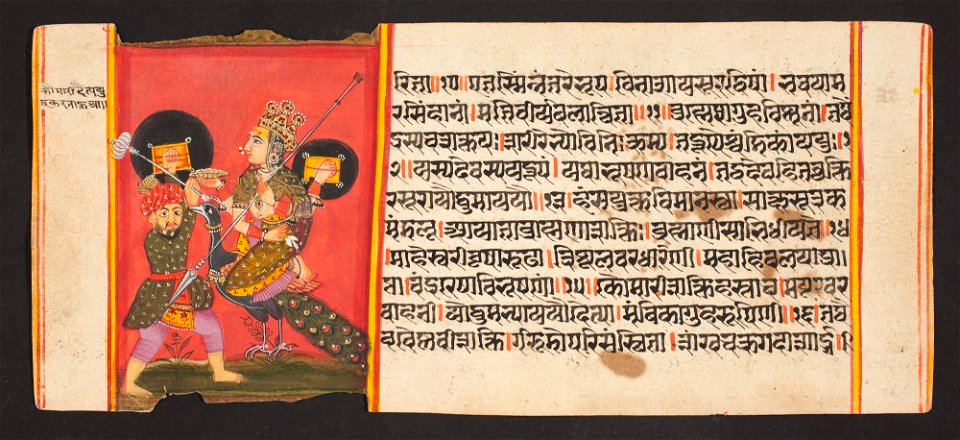 कौमारी दैत्ययु
द्ध करनाऊआ॥
रिता॥१०॥एतस्मिंन्नंतरे भूप।विनाशायसूरद्विषां।भवायाम
रसिंहानां।मतिवीर्यबलान्विता॥११॥ब्रह्मेशगुहविस्नूनां।तथें
द्रस्यचशक्तयः।शरीरेभ्योविनिःक्रम्य।तद्रूपैश्चंडिकांययुः॥१
२॥यस्यदेवस्ययद्रूपं।यथाभूषणवाहनं।तद्वदेवहितछक्ति
रसूरान्योद्धुमाययौ॥१३॥हंसयुक्तविमानस्था।साक्षसूत्रक
मंडलू।आयाताब्राह्मणाशक्तिः।ब्रह्माणीसाभिधीयते॥१४
माहेस्वरीवृषारूढा।त्रिशूलवरधारिणी।महाहिवलयाप्रा
प्ता।चंद्ररेषाविभूषणां॥१५॥कौमारीशक्तिहस्ताच।मयूरवर
वाहनी।योद्धुमभ्याययौदैत्या।मंबिकागुहरूपिणी॥१६॥तथै
ववैस्नवीशक्ति।र्गरुडोपरिसंस्थिता।शंखचक्रगदाशार्ङ्ग।